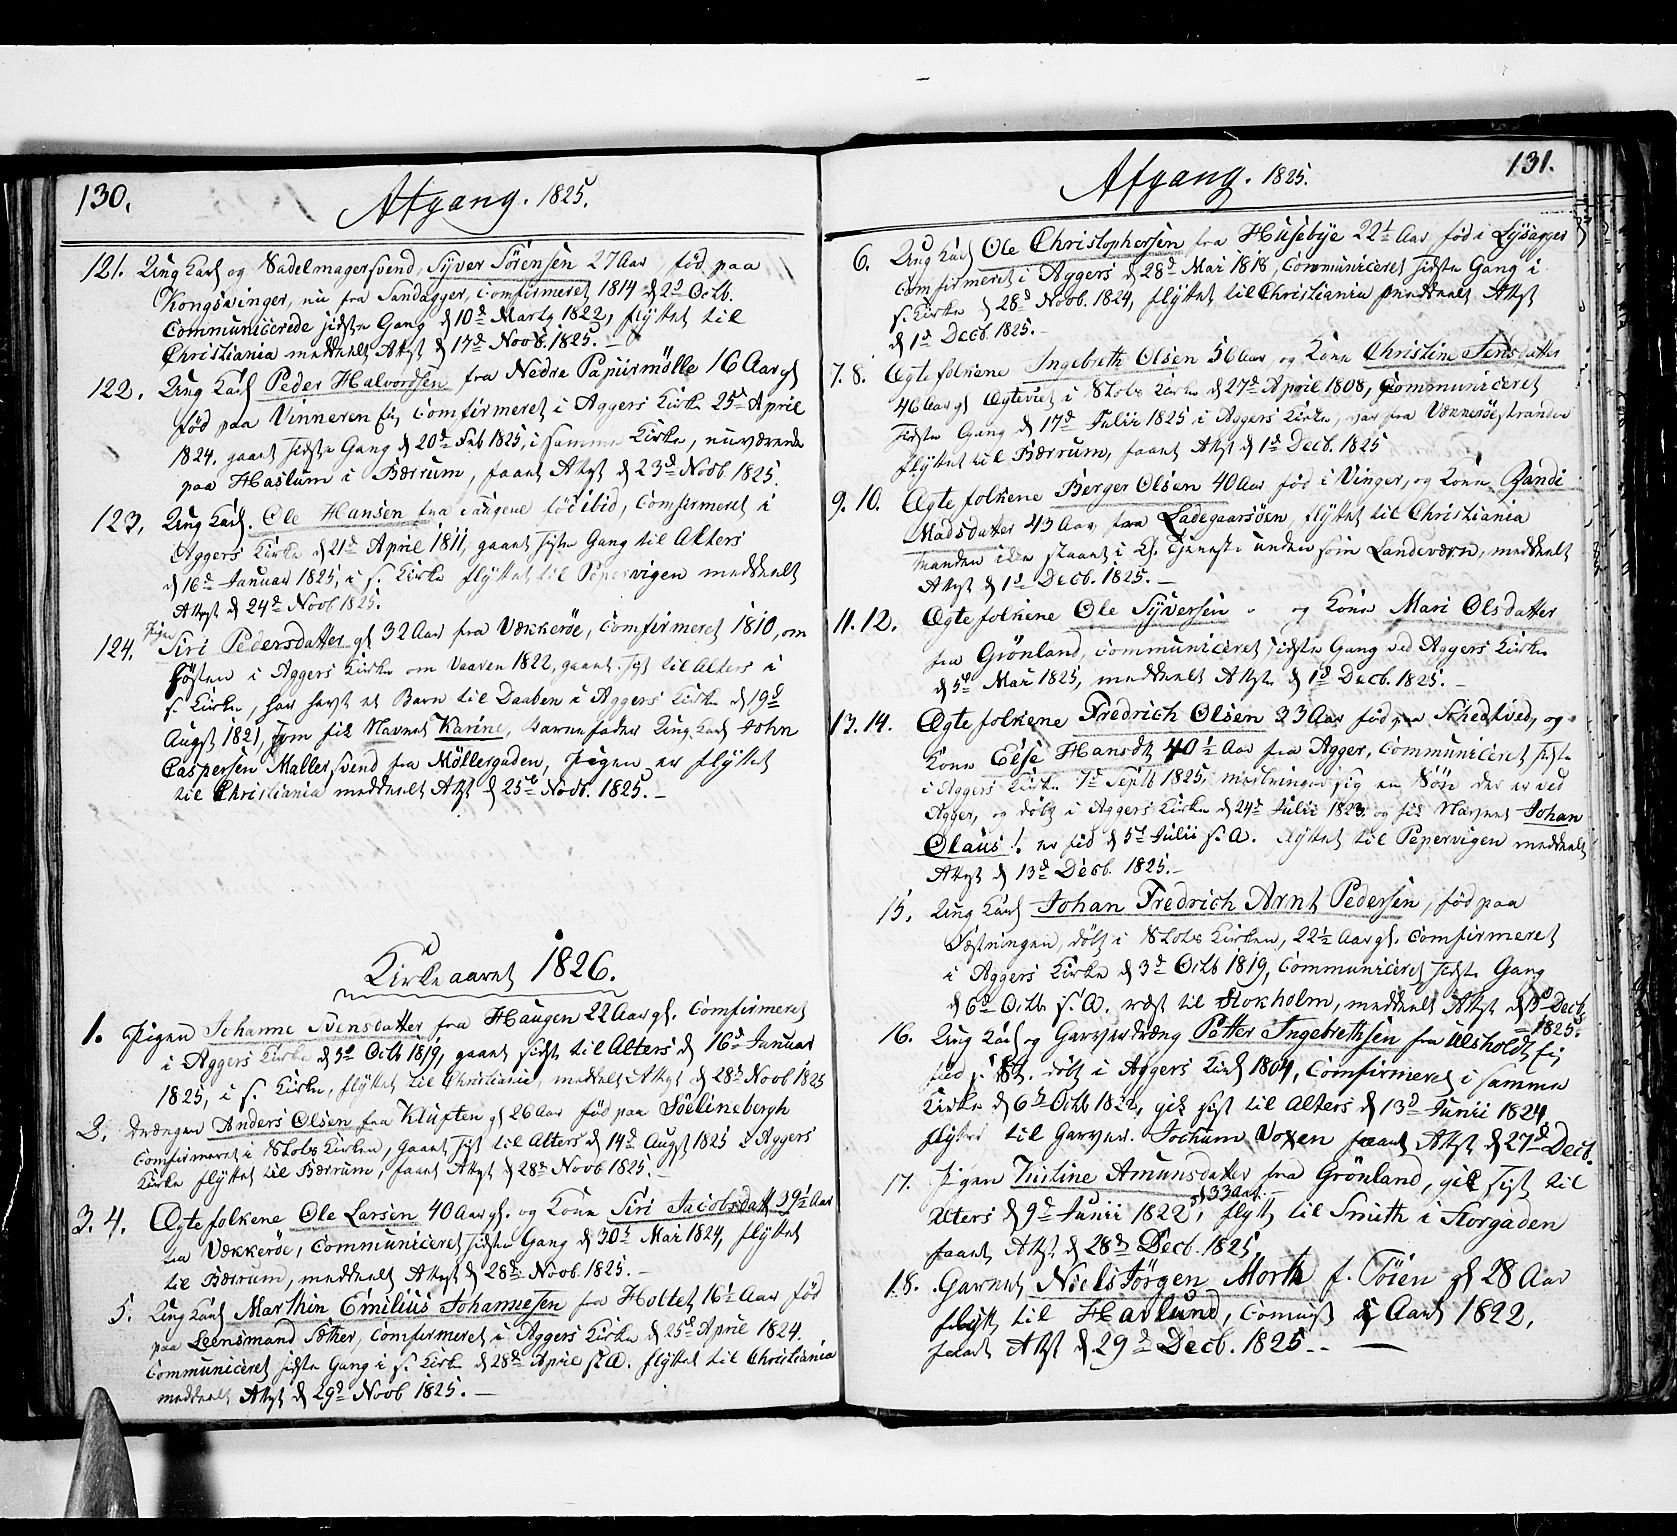 130.
Afgang. 1825.
121. Ung Karl og Sadelmagersvend, Syver Sörensen 27 Aar, fød paa
Kongsvinger, nu fra Sandagger, Comfirmeret 1814 d 2d Octb.
Communicerede sidste Gang d 10d Marty 1822, flyttet til
Christiania meddeelt Attest d 17d Novb. 1825.
122. Ung Karl Peder Halvordsen fra Nedre Papiirmölle 16 Aar gl
fød paa Vinneren Eie, Comfirmeret i Aggers Kirke 25de April
1824. gaaet sidste Gang d 20d Feb 1825, i samme Kirke, nuværende
paa Haslum i Bærrum, faaet Attest d 23d Novb. 1825.
123. Ung Karl. Ole Hansen fra Haugene föd ibid, Comfirmeret i
Aggers Kirke d 21d April 1811, gaaet sidste Gang til Alters
d 16d Januar 1825, i s. Kirke flyttet til Pepervigen meddeelt
Attest d 24d Novb 1825.
124. Pigen Siri Pedersdatter gl 32 Aar fra Vækkeröe, Comfirmeret 1810, om
Høsten i Aggers Kirke om Vaaren 1822, gaaet sist til Alters i
s. Kirke, har havt et Barn til Daaben i Aggers Kirke d 19d
Augst 1821, som fik Navnet Karine, Barnefader Ung Karl John
Caspersen Mallersvend fra Möllergaden, Pigen er flyttet
til Christiania meddeelt Attest d 25d Novb. 1825.
Kirkeaaret 1826.
1. Pigen Johanne Svensdatter fra Haugen 22 Aar gl. Comfirmeret
i Aggers Kirke d 3d Octb 1819, gaaet sidst til Alters d 16d Januar
1825, i s. Kirke, flyttet til Christiania, meddeelt Attest d 28d Novb 1825
2. Drængen Anders Olsen fra Kluften gl 26 Aar fød paa Sölinebergh
Comfirmeret i Slots Kirken, Gaaet sist til Alters d 14d Augst 1825 i Aggers
Kirke flyttet til Bærrum, faaet Attest d 28d Novb 1825.
3. 4. Ægtefolkene Ole Larsen 40 Aar gl. og Kone Siri Jacobsdatt 39½ Aar
fra Vækkeröe, Communiceret sidste Gang d 30d Mai 1824, flyttet
til Bærrum, meddeelt Attest d 28d Novb. 1825.
5. Ung Karl Marthin Emilius Johannesen fra Holtet 16½ Aar fød
paa Leensmand Sæther, Comfirmeret i Aggers Kirke d 25d April 1824.
Communiceret sidste Gang i s. Kirke d 28d April s. A. flyttet til Christiania
meddeelt Attest d 29d Novb 1825.
131.
Afgang. 1825.
6. Ung Karl Ole Christophersen fra Husebye 22½ Aar fød i Lysagger
Comfirmeret i Aggers d 28d Mai 1818, Communiceret sidste Gang i
s. Kirke d 28d Novb. 1824, flyttet til Christiania meddeelt Attest
d 1d Decb. 1825.
7. 8. Ægtefolkene Ingebreth Olsen 56 Aar og Kone Christine Jensdatter
46 Aar gl Ægteviet i Slots Kirke d 27d April 1808, Communiceret
sidste Gang d 17d Julii 1825 i Aggers Kirke, var fra Vækkeröestranden
flyttet til Bærrum, faaet Attest d 1d Decb. 1825
9. 10. Ægtefolkene Berger Olsen 40 Aar fød i Vinger, og Kone Randi
Madsdatter 43 Aar fra Ladegaarsöen flyttet til Christiania
manden ikke staaet i Kl. tjeneste unden som Landeværn, meddeelt
Attest d 1d Decb. 1825.
11. 12. Ægtefolkene Ole Syversen og Kone Mari Olsdatter
fra Grönland, Communiceret sidste Gang ved Aggers Kirke
d 5d Mai 1825, meddeelt Attest d 1d Decb. 1825.
13. 14. Ægtefolkene Fredrich Olsen 33 Aar fød paa Schedtved, og
Kone Else Hansdtr 40½ Aar fra Agger, Communiceret sidste
i Aggers Kirke 7d Septb 1825, medbringer sig en Sön der er ved
Agger, og döbt i Aggers Kirke d 24d Julii 1823 og fik Navnet Johan
Olaus. er fød d 5d Julii s. A. flyttet til Pepervigen meddeelt
Attest d 13d Decb. 1825.
15. Ung Karl Johan Fredrich Arnt Pedersen, fød paa
Fæstningen, döbt i Slots Kirken, 22½ Aar gl. Comfirmeret
i Aggers Kirke d 3d Octb 1819, Communiceret sidste Gang
d 6d Octb s. A. rest til Stokholm, meddeelt Attest d 3d Decb
1825.
16. Ung Karl og Garverdræng Petter Ingebrethsen fra Ulsholdt Eie
fød döbt i Aggers Kirk 1804, Comfirmeret i samme
Kirke d 6d Octb gik sist til Alters d 13d Junii 1824
flyttet til Garver Jochum Voxen faaet Attest d 27d Decb.
17. Pigen Amunsdatter fra Grönland, gik sist til
Alters d 9d Junii 1822, gl 33 Aar. flytt til Smith i Storgaden
faaet Attest d 28d Decb. 1825.
18. Garver Niels Jörgen Morth f. Töien gl 28 Aar
flytt til Havlund, Comuis i Aaret 1822,
faaet Attst d 29d Decb. 1825.